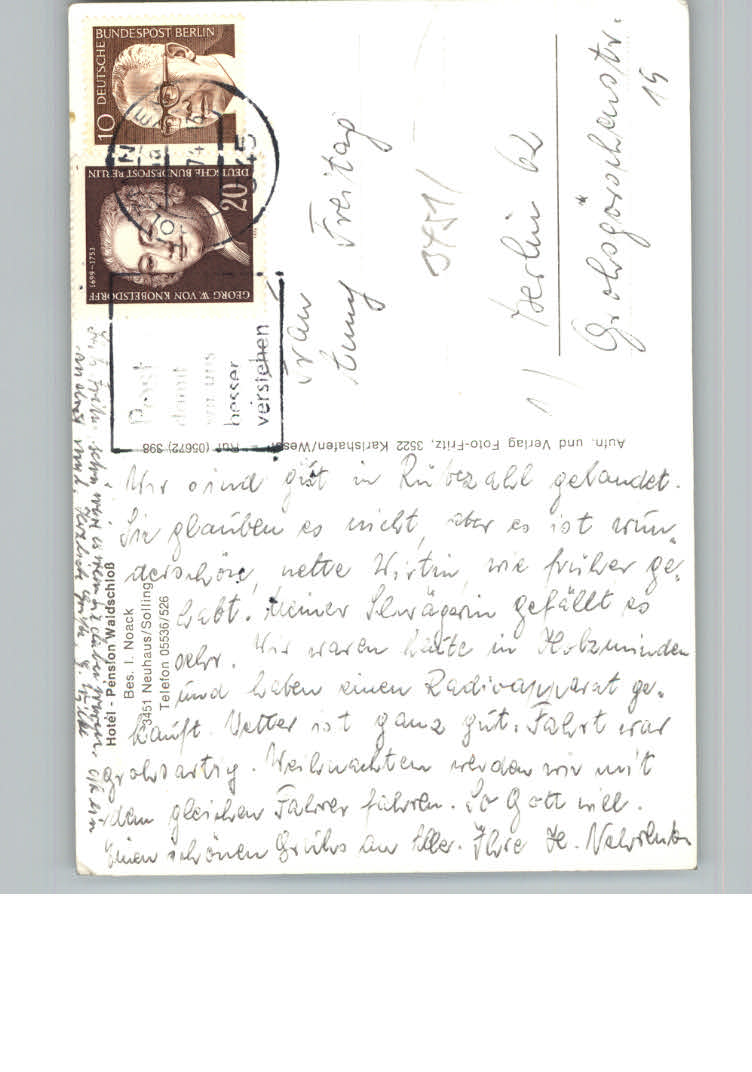 DEUTSCHE BUNDESPOST BERLIN
10
DEUTSCHE BUNDESPOST BERLIN
20
GEORG W. VON KNOBELSDORFF
1699–1753
345
Post
damit
wir uns
besser
verstehen
Frau
Freitag
3451
1/ Berlin 62
Grohsgörschenstr.
15
Aufn. und Verlag Foto-Fritz, 3522 Karlshafen/Weser Ruf (05672) 398
Hotel - Pension Waldschloß
Bes. I. Noack
3451 Neuhaus/Solling
Telefon 05536/526
Wir sind gut in Rübezahl gelandet.
Sie glauben es nicht, aber es ist wun-
derschön, nette Wirtin, wie früher ge-
habt. Meiner Schwägerin gefällt es
sehr. Wir waren heute in Holzminden
und haben einen Radioapparat ge-
kauft. Wetter ist ganz gut. Fahrt war
grohsartig. Weihnachten werden wir mit
dem gleichen Fahrer fahren. So Gott will.
Einen schönen Gruhs an Alle. Ihre